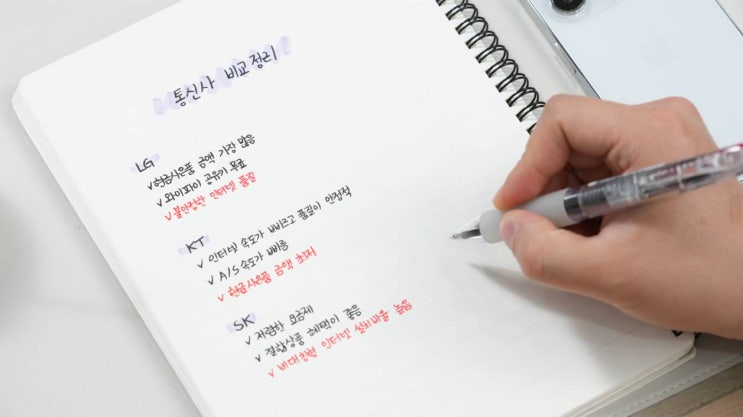 통신사 비교정리
LG
✓현금사은품 금액 가장 많음
✓와이파이 공유기 무료
✓불안정한 인터넷 품질
KT
✓ 인터넷 속도가 빠르고 품질이 안정적
✓ A/S 속도가 빠름
✓ 현금사은품 금액 최저
SK
✓ 저렴한 요금제
✓ 결합상품 혜택이 좋음
✓ 비대칭형 인터넷 설치비율 높음